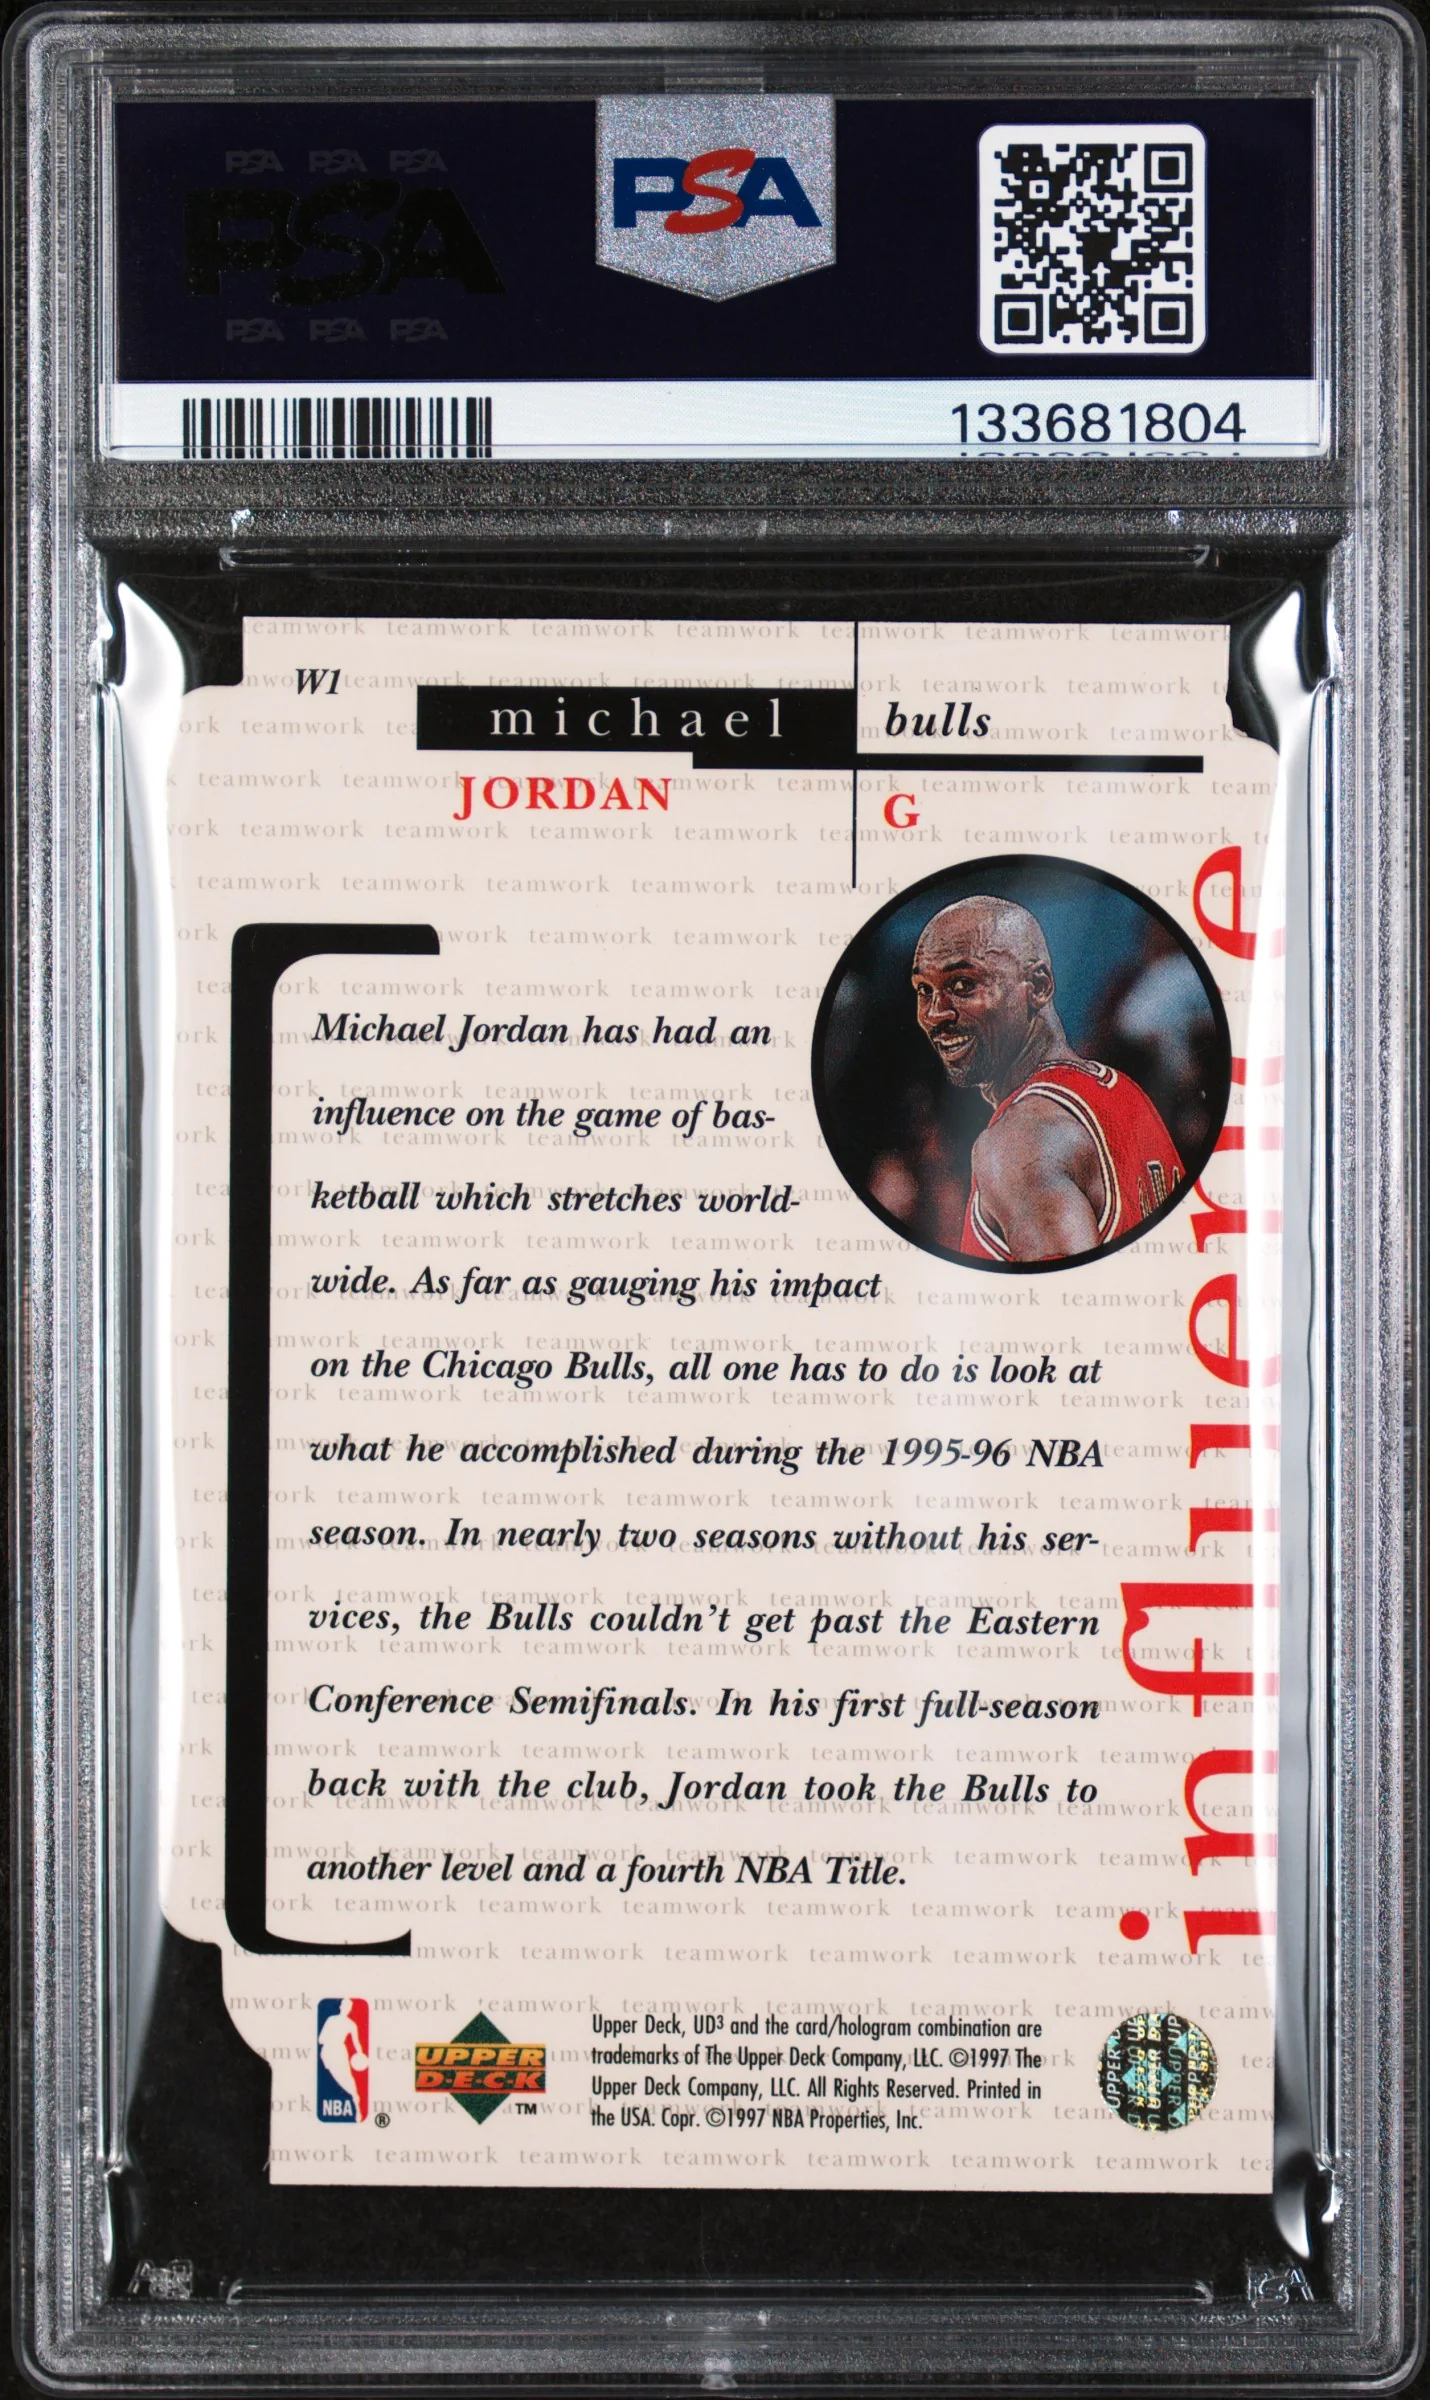 PSA PSA PSA
PSA
PSA PSA PSA
PSA
133681804
W1
michael
bulls
JORDAN
G
Michael Jordan has had an
influence on the game of bas-
ketball which stretches world-
wide. As far as gauging his impact
on the Chicago Bulls, all one has to do is look at
what he accomplished during the 1995-96 NBA
season. In nearly two seasons without his ser-
vices, the Bulls couldn't get past the Eastern
Conference Semifinals. In his first full-season
back with the club, Jordan took the Bulls to
another level and a fourth NBA Title.
influence
NBA ®
UPPER
D·E·C·K
™
Upper Deck, UD³ and the card/hologram combination are
trademarks of The Upper Deck Company, LLC. ©1997 The
Upper Deck Company, LLC. All Rights Reserved. Printed in
the USA. Copr. ©1997 NBA Properties, Inc.
teamwork teamwork teamwork teamwork teamwork teamwork
PSA